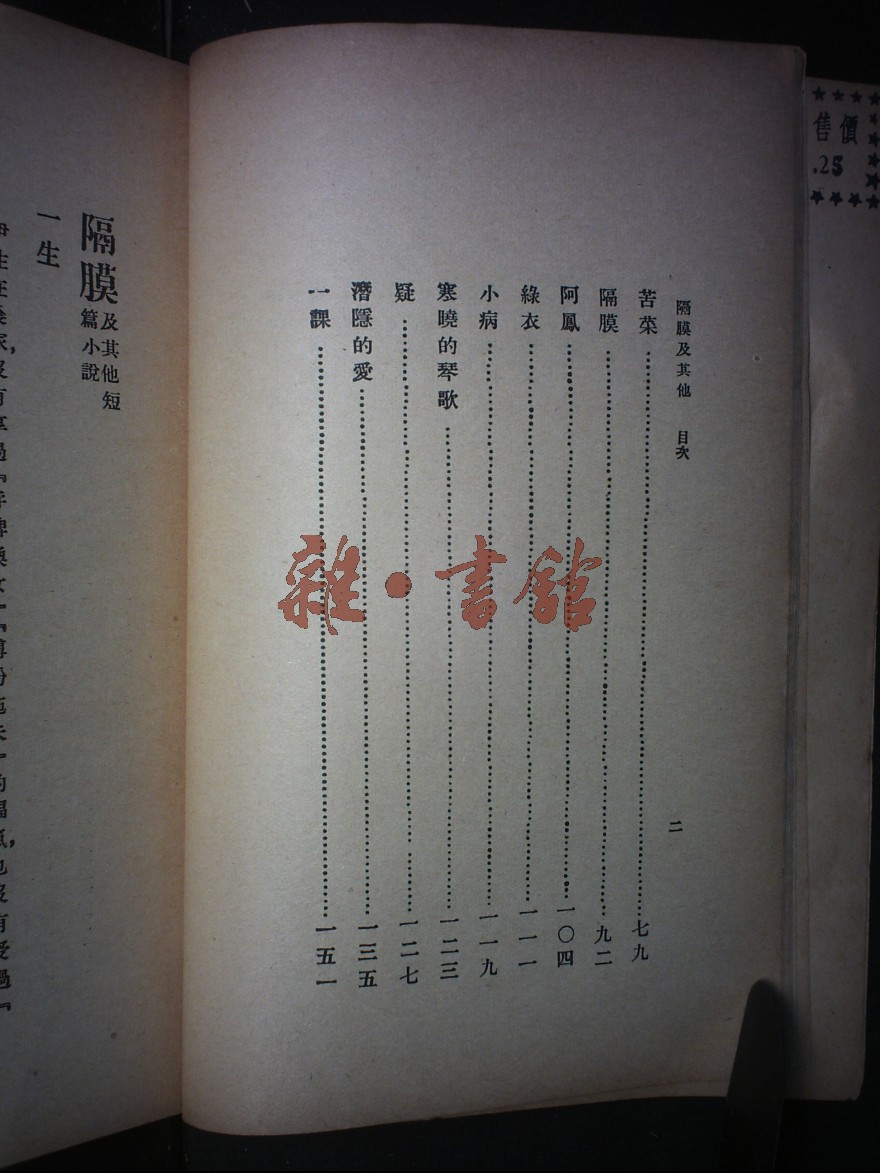 隔膜及其他　目次
二
苦菜……七九
隔膜……九二
阿鳳……一〇四
綠衣……一一一
小病……一一九
寒曉的琴歌……一二三
疑……一二七
潛隱的愛……一三五
一課……一五一
隔膜及其他短篇小說
一生
售價
.25
雜·書館